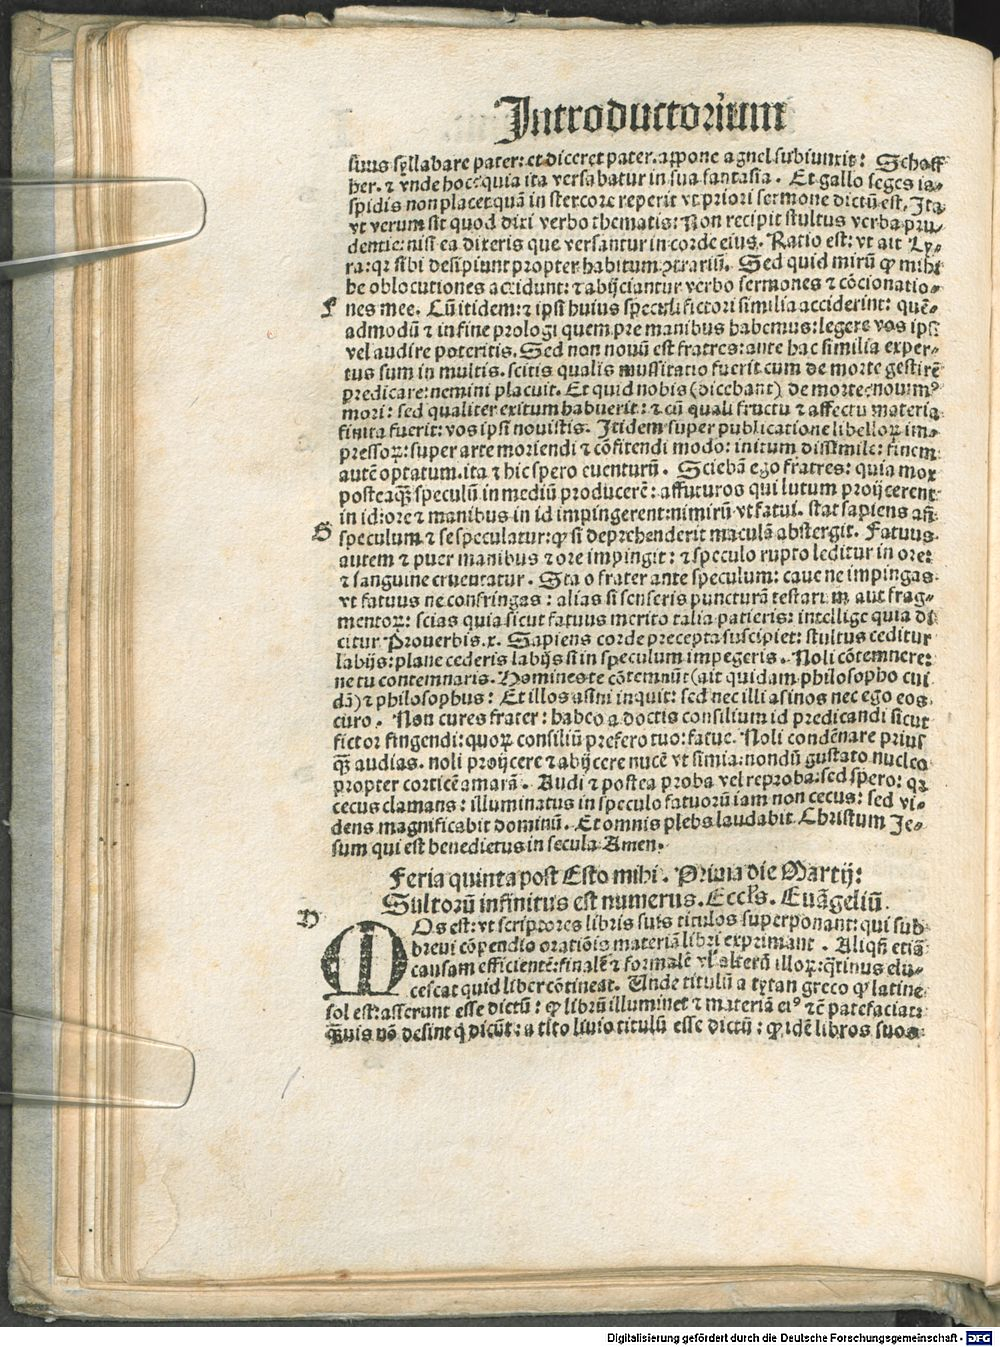 Introductorium
suus syllabare pater: et diceret pater. appone agnel subiunxit: Schaff
her. ⁊ vnde hoc: quia ita versabatur in sua fantasia. Et gallo seges ia⸗
spidis non placet quã in stercore reperit vt priori sermone dictũ est. Ita
vt verum sit quod dixi verbo thematis: Non recipit stultus verba pru⸗
dentie: nisi ea dixeris que versantur in corde eius. Ratio est: vt ait Ly⸗
ra: qꝛ sibi desipiunt propter habitum ꝯtrariũ. Sed quid mirũ ꝙ mihi
he oblocutiones accidunt: ⁊ abijciantur verbo sermones ⁊ cõcionatio⸗
F nes mee. Cũ itidem: ⁊ ipsi huius speculi fictori similia acciderint: quẽ⸗
admodũ ⁊ in fine prologi quem pre manibus habemus: legere vos ipsi
vel audire poteritis. Sed non nouũ est fratres: ante hac similia exper⸗
tus sum in multis. scitis qualis mussitatio fuerit cum de morte gestirẽ
predicare: nemini placuit. Et quid nobis (dicebant) de morte: nouimꝰ
mori: sed qualiter exitum habuerit: ⁊ cũ quali fructu ⁊ affectu materia
finita fuerit: vos ipsi nouistis. Itidem super publicatione libelloꝝ im⸗
pressoꝝ: super arte moriendi ⁊ cõfitendi modo: initum dissimile: finem
autẽ optatum. ita ⁊ hic spero euenturũ. Sciebã ego fratres: quia mox
posteaꝙ̃ speculũ in mediũ producerẽ: affuturos qui lutum proijcerent
in id: ore ⁊ manibus in id impingerent: nimirũ vt fatui. stat sapiens añ
G speculum ⁊ se speculatur: ꝙ si deprehenderit maculã abstergit. Fatuus
autem ⁊ puer manibus ⁊ ore impingit: ⁊ speculo rupto leditur in ore:
⁊ sanguine cruentatur. Sta o frater ante speculum: caue ne impingas
vt fatuus ne confringas: alias si senseris puncturã testarum aut frag⸗
mentoꝝ: scias quia sicut fatuus merito talia patieris: intellige quia di
citur Prouerbis. x. Sapiens corde precepta suscipiet: stultus ceditur
labijs: plane cederis labijs si in speculum impegeris. Noli cõtemnere:
ne tu contemnaris. Homines te cõtemnũt (ait quidam philosopho cui
dã) ⁊ philosophus: Et illos asini inquit: sed nec illi asinos nec ego eos
curo. Non cures frater: habeo a doctis consilium id predicandi sicut
fictor fingendi: quoꝝ consiliũ prefero tuo: fatue. Noli condẽnare prius
ꝙ̃ audias. noli proijcere ⁊ abijcere nucẽ vt simia: nondũ gustato nucleo
propter corticẽ amarã. Audi ⁊ postea proba vel reproba: sed spero: qꝛ
cecus clamans: illuminatus in speculo fatuorũ iam non cecus: sed vi⸗
dens magnificabit dominũ. Et omnis plebs laudabit Christum Je⸗
sum qui est benedictus in secula Amen.
Feria quinta post Esto mihi. Prima die Martij:
Stultorũ infinitus est numerus. Eccls. Euãgeliũ.
D MOs est: vt scriptores libris suis titulos superponant: qui sub
breui cõpendio orationis materiã libri exprimant. Aliqñ etiã
causam efficientẽ: finalẽ ⁊ formalẽ vl̕ alterũ illoꝝ: q̃tinus elu⸗
cescat quid liber cõtineat. Unde titulũ a tytan greco ꝙ latine
sol est: asserunt esse dictũ: ꝙ librũ illuminet ⁊ materiã eiꝰ tẽ patefaciat:
ꝙ̃uis nõ desint q̇ dicũt: a tito liuio titulũ esse dictũ: ꝙ idẽ libros suos
Digitalisierung gefördert durch die Deutsche Forschungsgemeinschaft - DFG